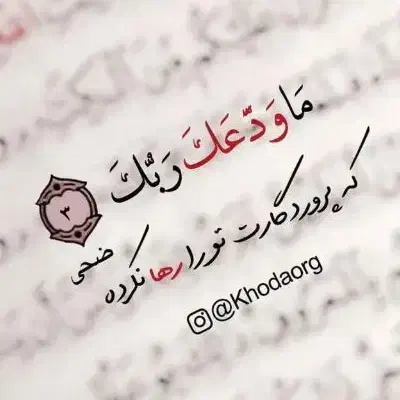 مَا وَدَّعَكَ رَبُّكَ ٣
که پروردگارت تو را رها نکرده
ضحی
@Khodaorg